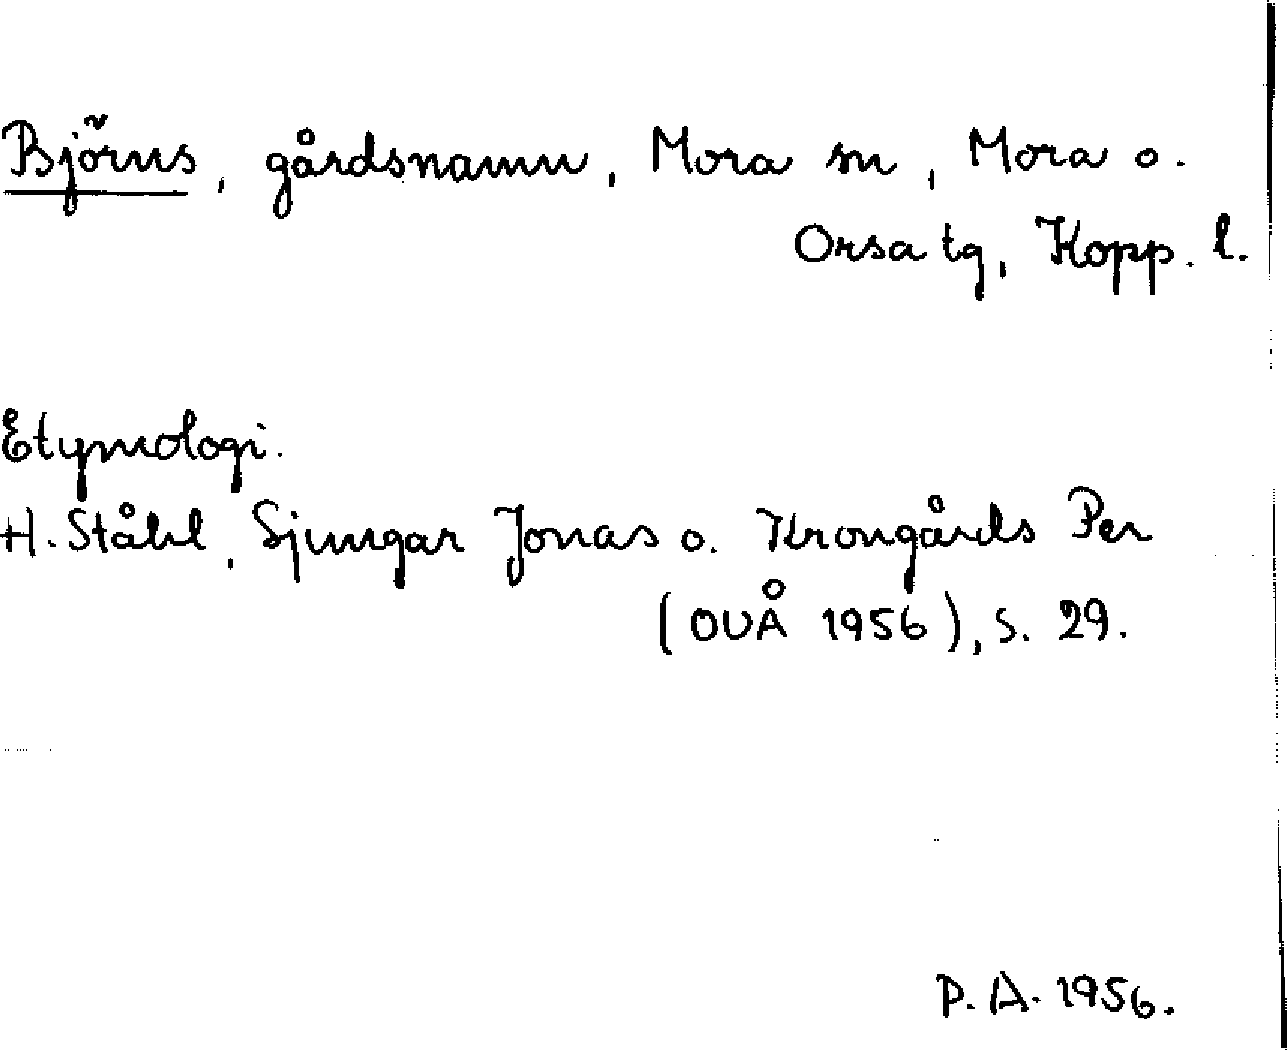 Björns, gårdsnamn, Mora sn, Mora o.
Orsa tg, Kopp. l.
Etymologi.
H. Ståhl, Sjungar Jonas o. Krongårds Per
(OUÅ 1956), s. 29.
P. A. 1956.